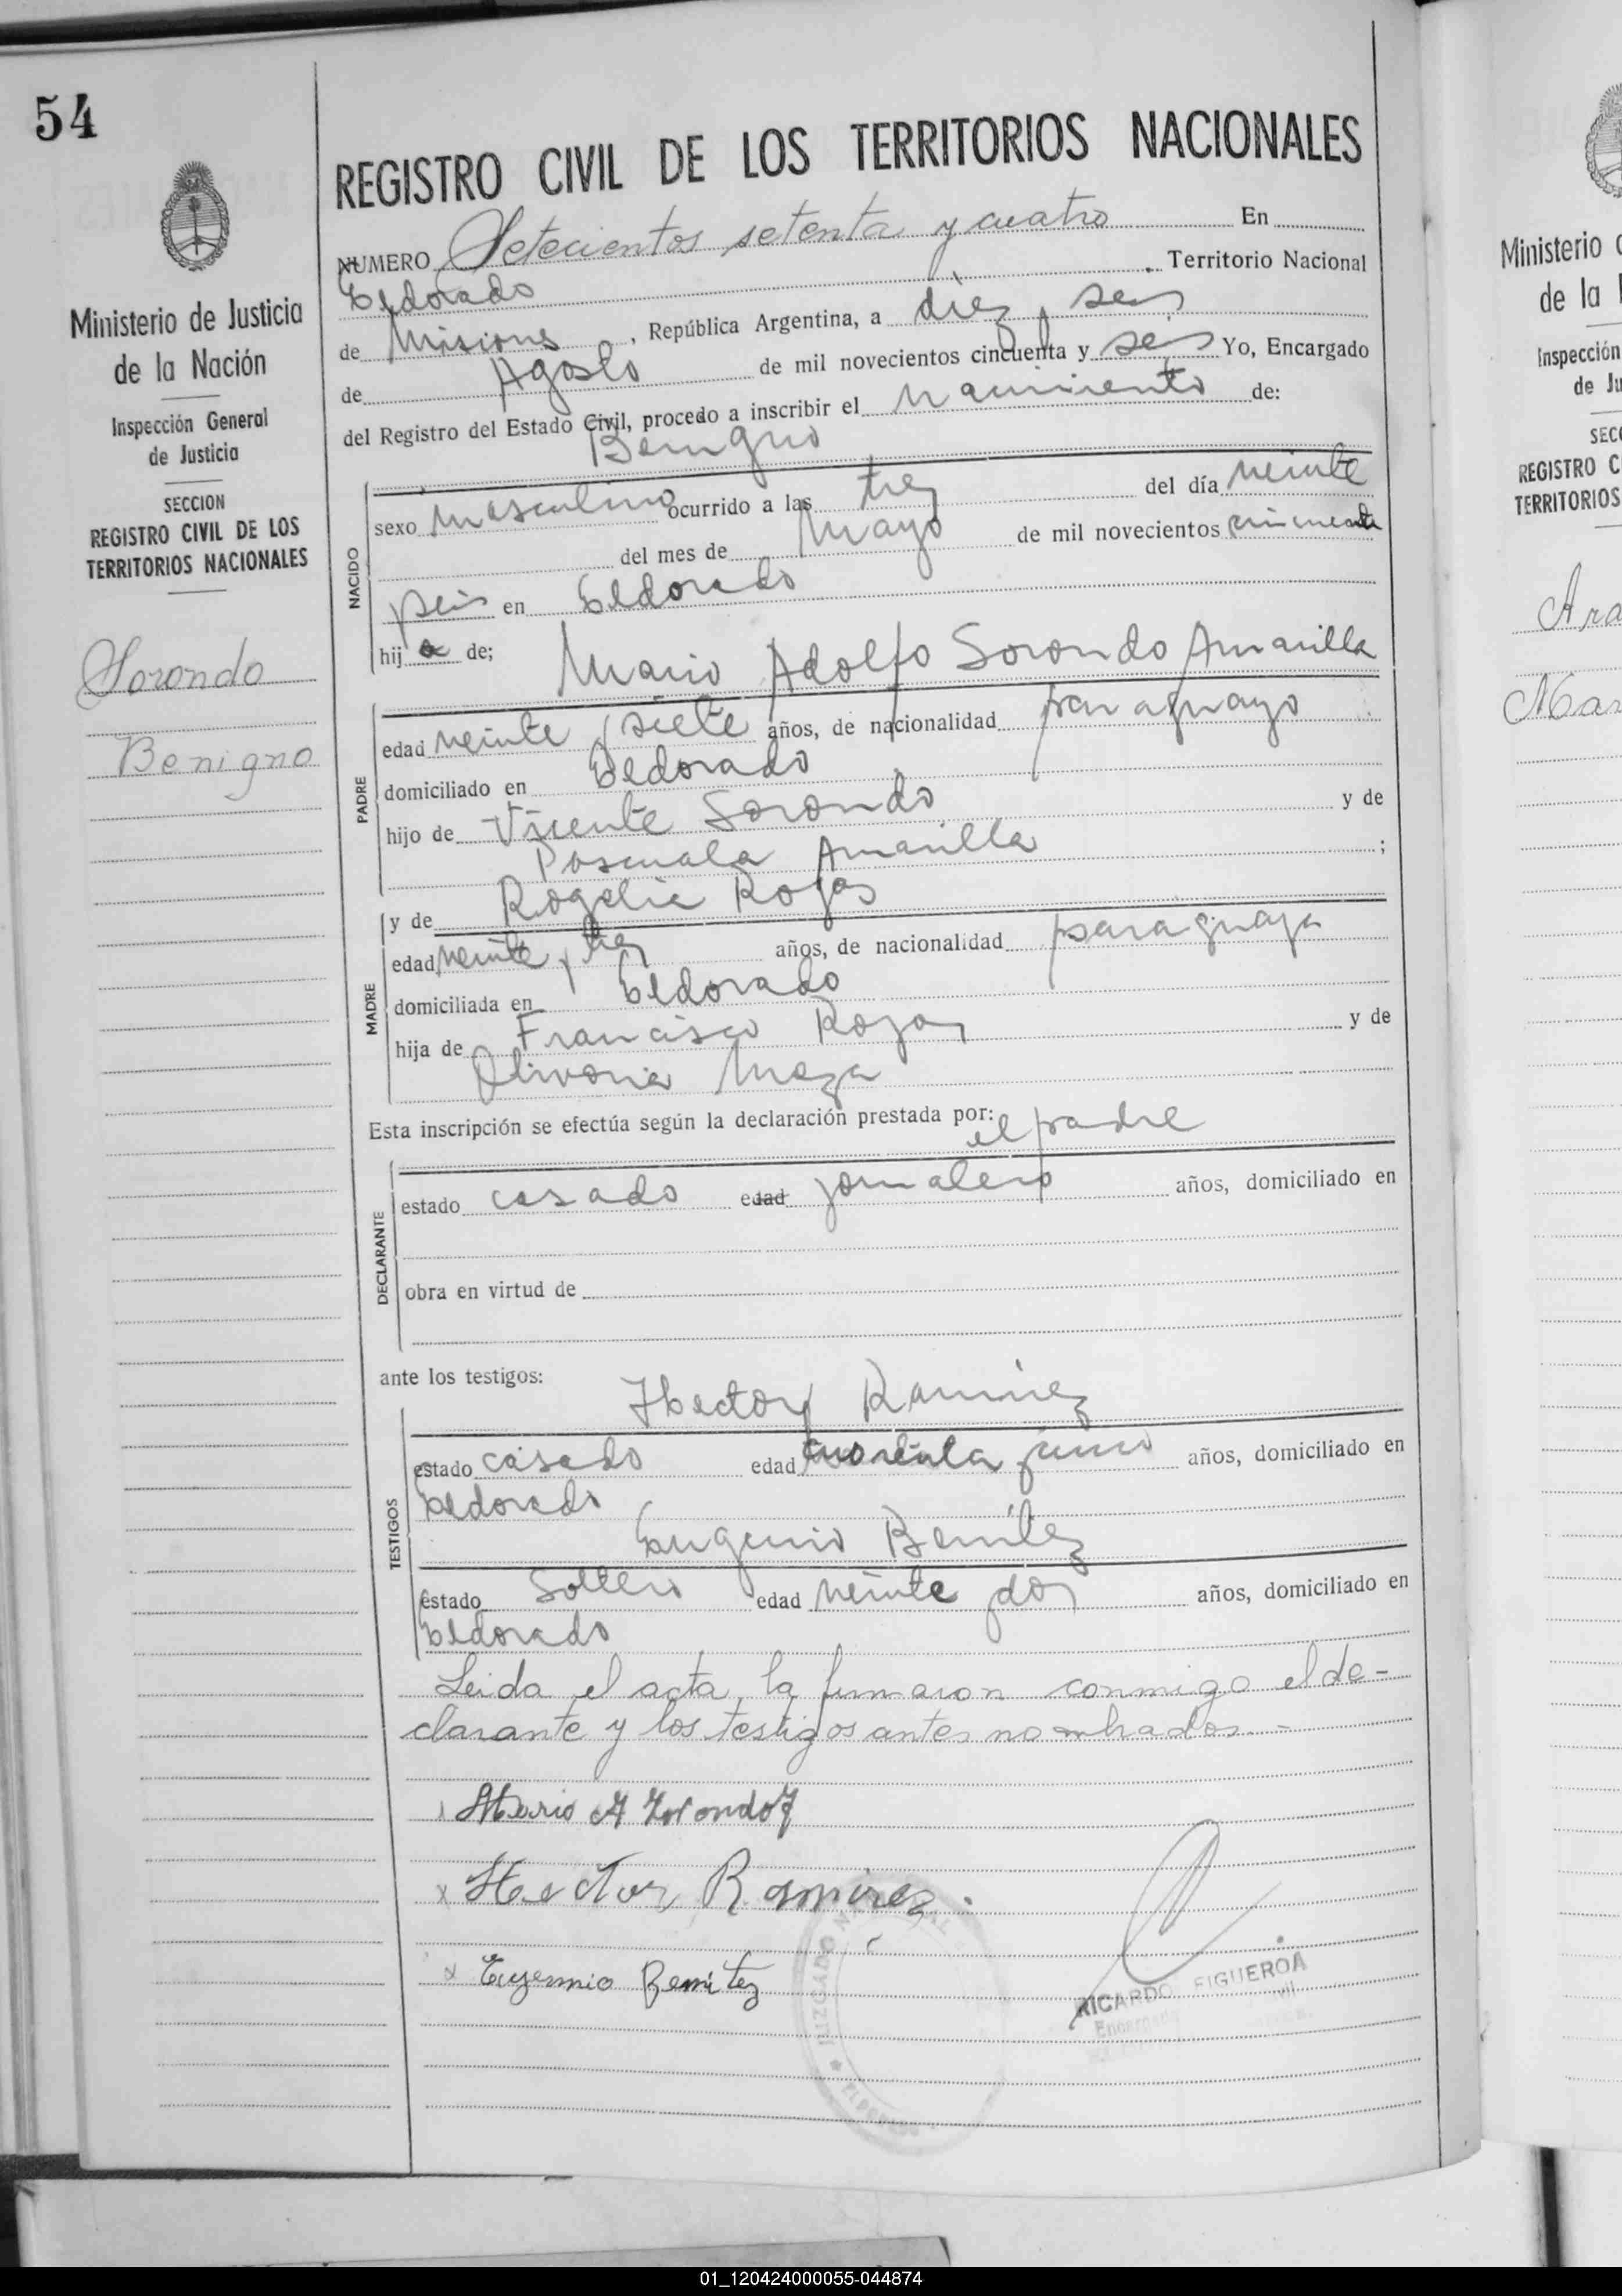 54
Ministerio de Justicia
de la Nación
Inspección General
de Justicia
SECCION
REGISTRO CIVIL DE LOS
TERRITORIOS NACIONALES
Sorondo
Benigno
REGISTRO CIVIL DE LOS TERRITORIOS NACIONALES
NUMERO Setecientos setenta y cuatro En
Eldorado . Territorio Nacional
de Misiones , República Argentina, a diez y seis
de Agosto de mil novecientos cincuenta y seis Yo, Encargado
del Registro del Estado Civil, procedo a inscribir el nacimiento de:
Benigno
NACIDO
sexo masculino ocurrido a las tres del día veinte
del mes de Mayo de mil novecientos cincuenta
seis en Eldorado
hij o de; Mario Adolfo Sorondo Amarilla
PADRE
edad veinte y siete años, de nacionalidad paraguayo
domiciliado en Eldorado
hijo de Vicente Sorondo y de
Pascuala Amarilla ;
y de Rogelia Rojas
MADRE
edad veinte y tres años, de nacionalidad paraguaya
domiciliada en Eldorado
hija de Francisco Rojas y de
Meza
Esta inscripción se efectúa según la declaración prestada por: el padre
DECLARANTE
estado casado edad jornalero años, domiciliado en
obra en virtud de
ante los testigos: Hector Ramirez
TESTIGOS
estado casado edad años, domiciliado en
Eldorado
Eugenio Benitez
estado Soltero edad veinte y dos años, domiciliado en
Eldorado
Leida el acta, la firmaron conmigo el de-
clarante y los testigos antes nombrados.-
Mario A Sorondo
x Hector Ramirez.
x Eugennio Benitez
JUZGADO
ELDORADO
RICARDO FIGUEROA
Ministerio
de la
Inspección
de Ju
SEC
REGISTRO C
TERRITORIOS
Ara
Mar
01_120424000055-044874